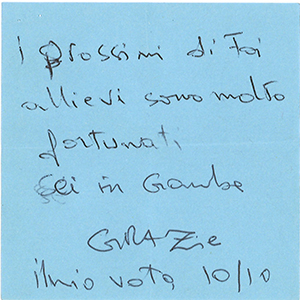 I prossimi di Foi
allievi sono molto
fortunati
Sei in Gambe
GRAZie
il mio voto 10/10